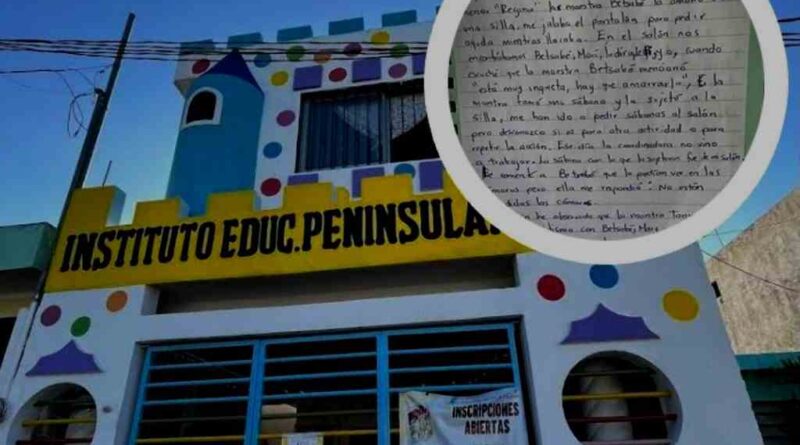 INSTITUTO EDUC. PENINSULA
INSCRIPCIONES
ABIERTAS
"Regina", me
una silla, me jalaba el pantalón para pedir
ayuda mientras lloraba. En el salón nos
Betsabé, Mari, yo, cuando
escuché que la maestra Betsabé mencionó
"está muy inquieta, hay que amarrarla", la
maestra tomó una sábana y la sujetó a la
silla, me han ido a pedir sábanas al salón
pero desconozco si es para otra actividad o para
repetir la acción. Ese día la coordinadora no vino
a trabajar. La sábana con la que la sujetaron fue de mi salón.
comenté a Betsabé que la podían ver en las
cámaras pero ella me respondió: No están
las cámaras
he observado que la maestra
con Betsabé, Mari